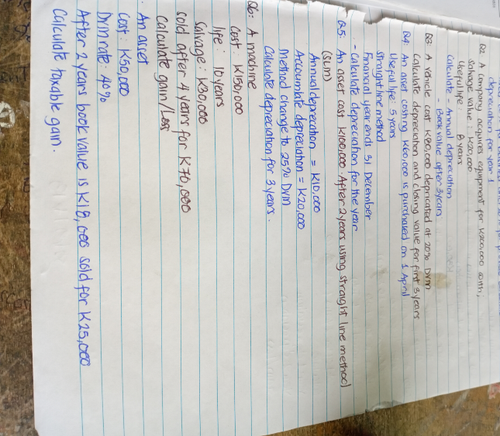 depreciation for year 1
Q2 A company acquires equipment for K200,000 with,
Salvage value: K20,000
Useful life 8 years
Calculate - Annual depreciation
- Book value after 3 years
Q3: A vehicle cost K80,000 depreciated at 20% DVM
Calculate depreciation and closing value for first 3 years
Q4: An asset costing K60,000 is purchased on 1 April
Useful life 5 years
Straight line method
Financial year ends 31 December
- Calculate depreciation for the year
Q5: An asset cost K100,000. After 2 years using straight line method
(SLM)
Annual depreciation = K10,000
Accumulate depreciation = K20,000
Method change to 25% DVM
Calculate depreciation for 3 years.
Q6: A machine
Cost: K150,000
life: 10 years
Salvage: K30,000
Sold after 4 years for K70,000
Calculate gain/Loss
. An asset
Cost: K50,000
DVM rate 40%
After 2 years book value is K18,000 sold for K25,000
Calculate taxable gain.